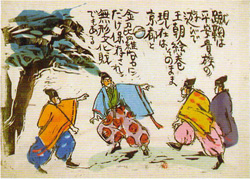 蹴鞠は
平安貴族の
遊びで
王朝絵巻
そのまま
現在は
京都と
金刀比羅宮に
だけ保存され
無形文化財
でもある